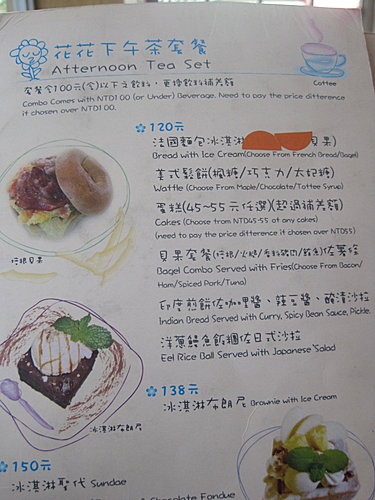 花花下午茶套餐
Afternoon Tea Set
Coffee
套餐含100元(含)以下之飲料，更換飲料補差額
Combo Comes with NTD100 (or Under) Beverage. Need to pay the price difference
it chosen over NTD100.
120元
法國麵包冰淇淋 貝果)
Bread with Ice Cream(Choose From French Bread/Bagel)
美式鬆餅(楓糖/巧克力/太妃糖)
Waffle (Choose From Maple/Chocolate/Toffee Syrup)
蛋糕(45~55元任選)(超過補差額)
Cakes (Choose from NTD45-55 of any cakes)
(need to pay the price difference it chosen over NTD55)
貝果套餐(培根/火腿/香料豬肉/鮪魚)佐薯條
Bagel Combo Served with Fries(Choose From Bacon/
Ham/Spiced Pork/Tuna)
培根貝果
印度煎餅佐咖哩醬、辣豆醬、酸漬沙拉
Indian Bread Served with Curry, Spicy Bean Sauce, Pickle.
洋蔥鰻魚飯糰佐日式沙拉
Eel Rice Ball Served with Japanese Salad
138元
冰淇淋布朗尼 Brownie with Ice Cream
冰淇淋布朗尼
150元
冰淇淋聖代 Sundae
Chocolate Fondue